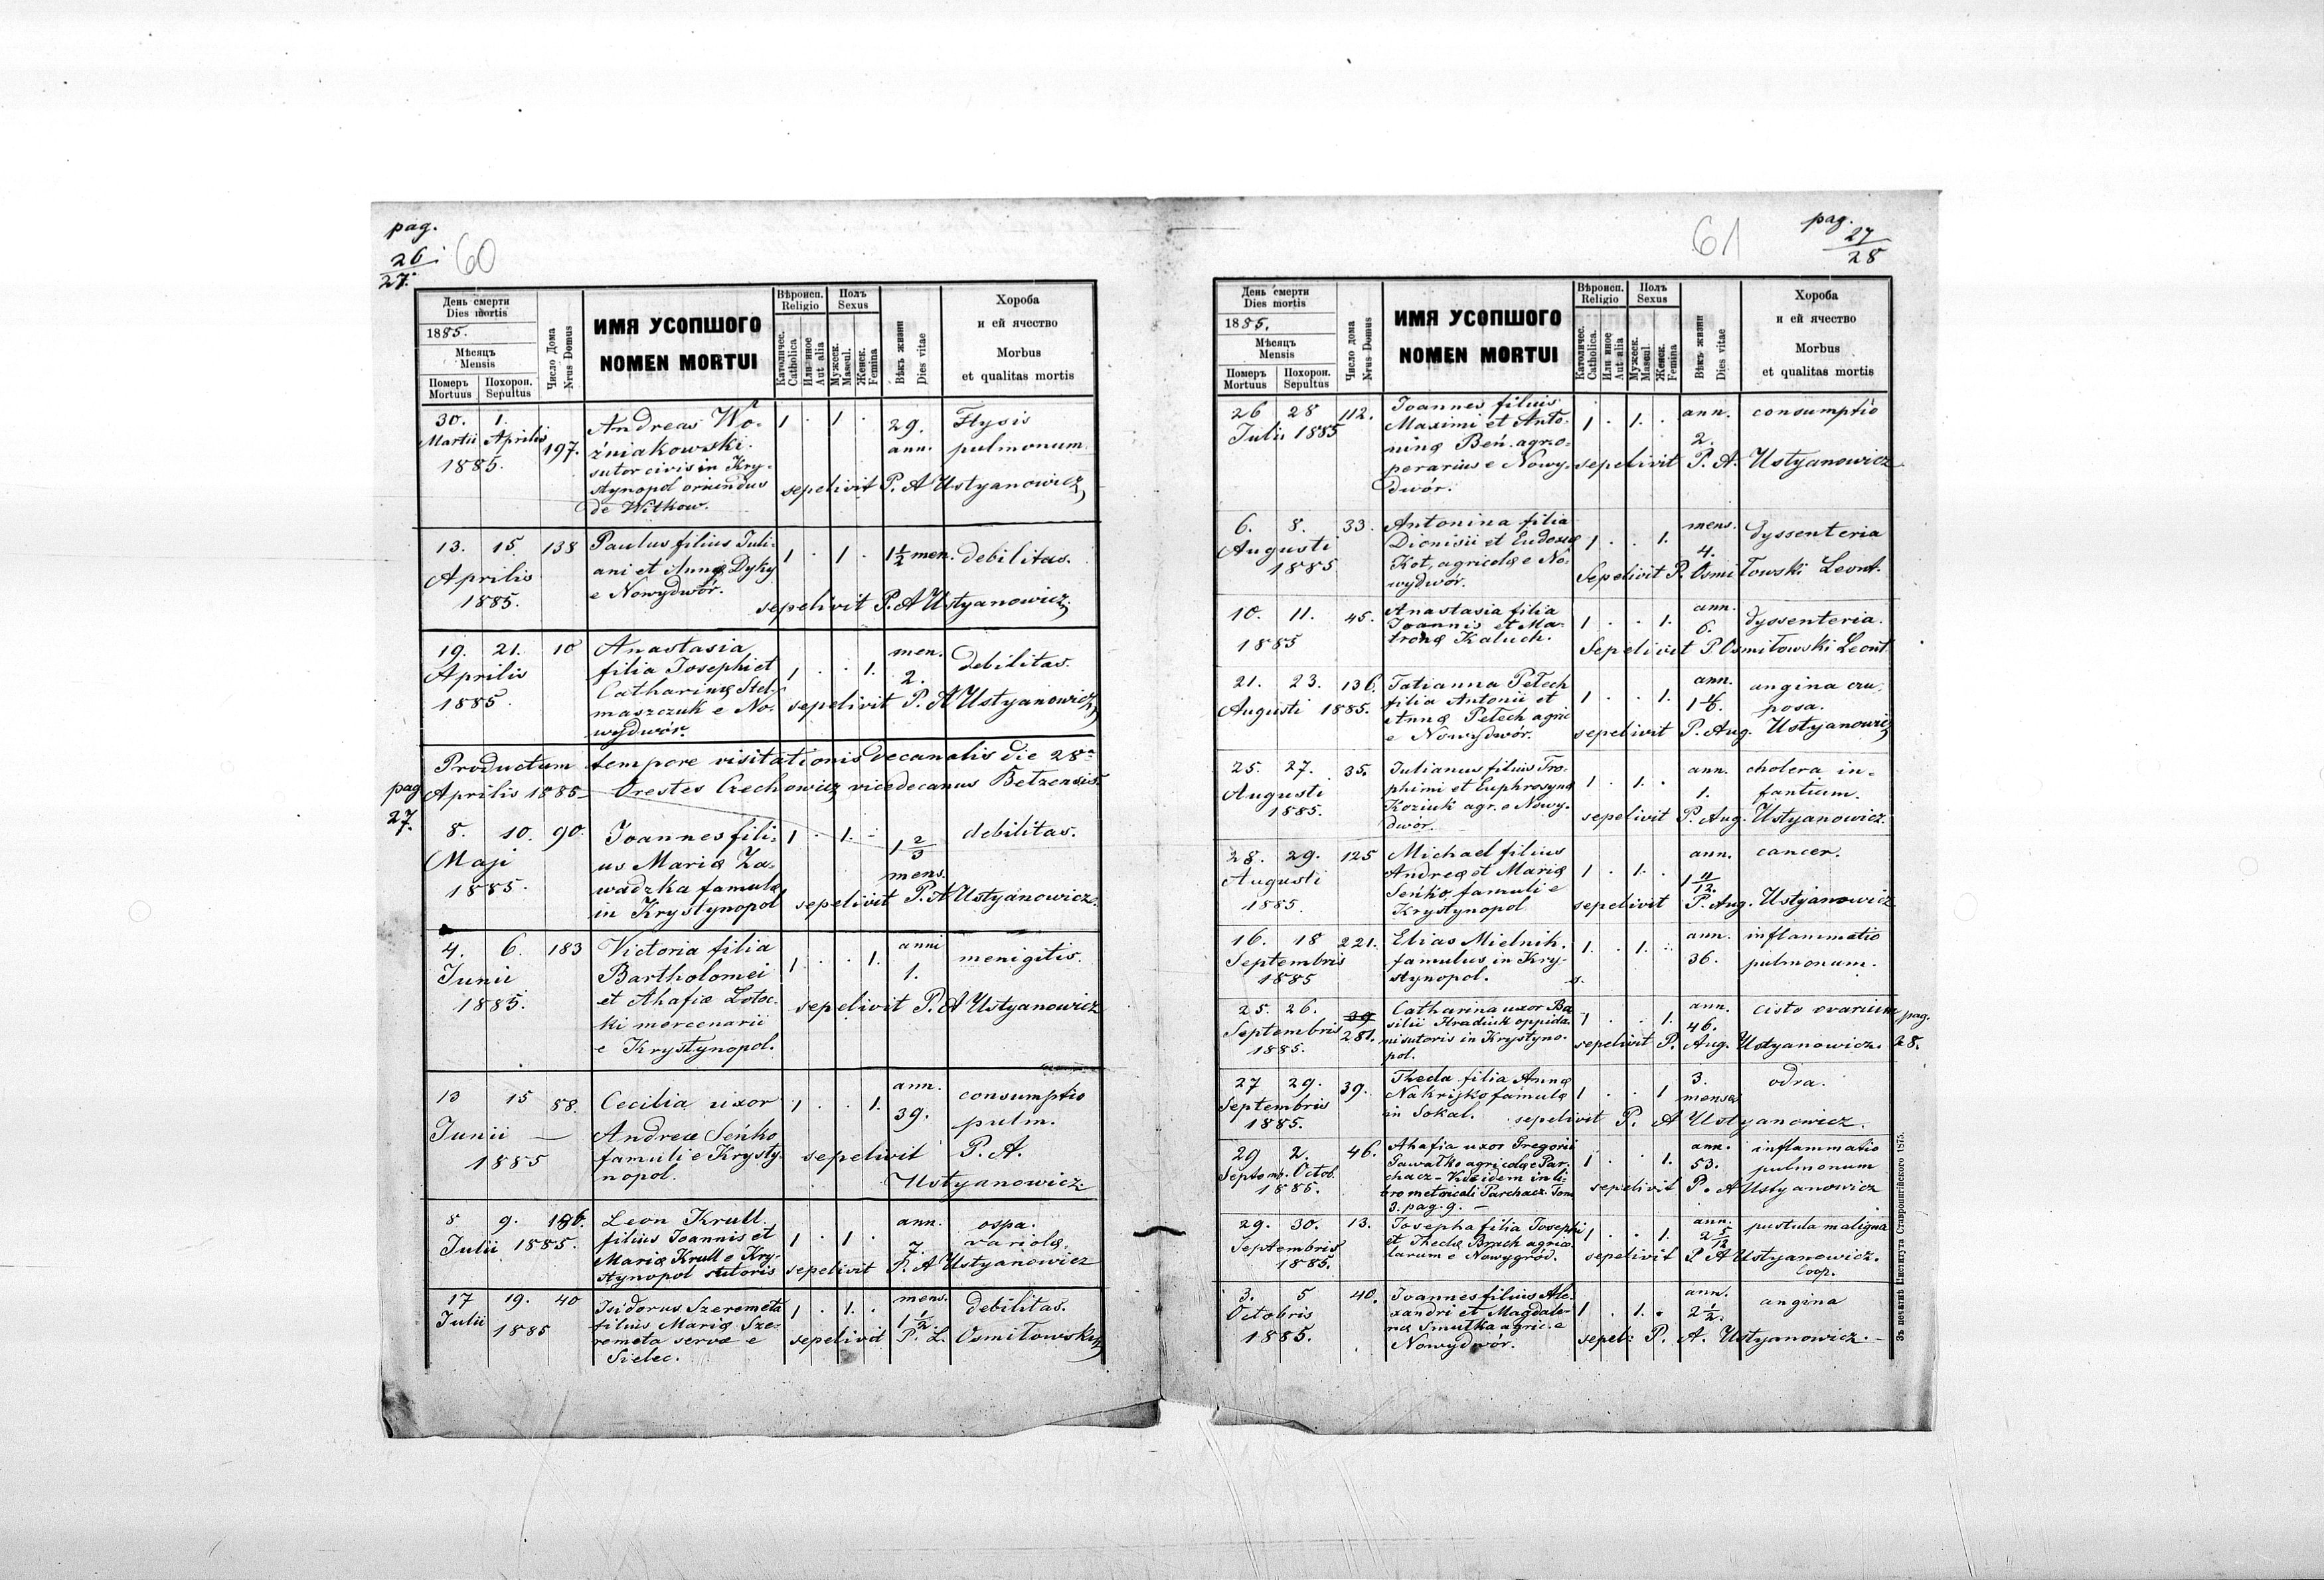 pag.
26
27.
60
День смерти
Dies mortis
1885.
Мѣсяцъ
Mensis
Померъ
Mortuus
Похорон.
Sepultus
Число Дома
Nrus Domus
ИМЯ УСОПШОГО
NOMEN MORTUI
Вѣроисп.
Religio
Католичес.
Catholica
Или иное
Aut alia
Полъ
Sexus
Мужеск.
Mascul.
Женск.
Femina
Вѣкъ жизни
Dies vitae
Хороба
и ей ячество
Morbus
et qualitas mortis
30. 1. 197. Andreas Wo- 1 . 1 . 29. Ftysis
Martii Aprilis źniakowski ann. pulmonum
1885. sutor civis in Kry-
stynopol oriundus sepelivit P. A Ustyanowicz
de Witkow.
13. 15. 138 Paulus filius Juli- 1 . 1 . 1½ men. debilitas.
Aprilis ani et Annæ Dyky
1885. e Nowydwór. sepelivit P. A Ustyanowicz
19. 21. 10 Anastasia men.
Aprilis filia Josephi et 1 . . 1. 2. debilitas.
1885. Catharinæ Stel-
maszczuk e No- sepelivit P. A Ustyanowicz
wydwór.
Productum tempore visitationis decanalis die 28a
pag Aprilis 1885 – Orestes Czechowicz vicedecanus Betzensis.
27.
8. 10. 90. Joannes fili- 1 . 1. . 1 2/3 debilitas.
Maji us Mariæ Za- mens.
1885. wadzka famulæ
in Krystynopol sepelivit P. A Ustyanowicz.
4. 6. 183 Victoria filia 1. . . 1. anni menigitis.
Junii Bartholomei 1.
1885. et Ahafiæ Łotoc- sepelivit P. A Ustyanowicz
ki mercenarii
e Krystynopol.
13 15 88. Cecilia uxor 1 . . 1. ann. consumptio
Junii — Andreæ Seńko 39. pulm.
1885 famuli e Krysty- sepelivit P. A.
nopol. Ustyanowicz
8 9. Leon Krull ann. ospa.
Julii 1885. filius Joannis et 1 . 1 . 7. variolæ.
Mariæ Krull e Kry-
stynopol sutoris sepelivit P. A Ustyanowicz
17 19. 40 Isidorus Szeremeta 1 . 1. . mens. debilitas.
Julii filius Mariæ Sze- 1½
1885 remeta servæ e sepelivit P. L. Osmiłowski
Sielec.
61
pag.
27
28
День смерти
Dies mortis
1885.
Мѣсяцъ
Mensis
Померъ
Mortuus
Похорон.
Sepultus
Число дома
Nrus Domus
ИМЯ УСОПШОГО
NOMEN MORTUI
Вѣроисп.
Religio
Католичес.
Catholica.
Или иное
Aut alia
Полъ
Sexus
Мужеск.
Mascul.
Женск.
Femina
Вѣкъ жизни
Dies vitae
Хороба
и ей ячество
Morbus
et qualitas mortis
26 28 112. Joannes filius ann. consumptio
Julii 1885 Maximi et Anto- 1 . 1. . 2.
ninæ Beń. agr. o-
perarius e Nowy- sepelivit P. A. Ustyanowicz
dwór.
6. 8. 33. Antonina filia mens. dyssenteria
Augusti Dionisii et Eudoxiæ 1 . . 1. 4.
1885 Kot, agricolæ e No- Sepelivit P. Osmiłowski Leont.
wydwór.
10. 11. 45. Anastasia filia ann.
Joannis et Ma- 1 . . 1. 6. dyssenteria.
1885 tronæ Kaluch. Sepelivit P. Osmiłowski Leont
21. 23. 136. Tatianna Pełech ann. angina cru-
Augusti 1885. filia Antonii et 1 . . 1. 1 1/6. posa.
Annæ Pełech agric
e Nowydwór. sepelivit P. Aug. Ustyanowicz
25. 27. 35. Julianus filius Tro- ann. cholera in-
Augusti phimi et Euphrosynæ 1 . 1. . 1. fantium.
1885. Koziuk agr. e Nowy- sepelivit P. Aug. Ustyanowicz.
dwór.
28. 29. 125 Michael filius ann. cancer.
Augusti Andreæ et Mariæ 1 . 1. . 1 11/12.
1885. Seńko, famuli e
Krystynopol sepelivit P. Aug. Ustyanowicz
16. 18 221. Elias Mielnik. 1. . 1. . ann. inflammatio
Septembris famulus in Kry- 36. pulmonum.
1885 stynopol. s.
25. 26. 39 Catharina uxor Ba- ann. cisto ovarium pag.
Septembris 281. silii Hradiuk oppida- 1 . . 1. 46.
1885. ni sutoris in Krystyno- sepelivit P. Aug. Ustyanowicz. 28.
pol.
27 29. 39. Thecla filia Annæ 3. odra.
Septembris Nakrijko famulæ 1 . . 1 menses
1885. in Sokal. sepelivit P. A Ustyanowicz.
29 2. 46. Ahafia uxor Gregorii ann. inflammatio
Septemb. Octob. Pawałko agricolæ e Par- 1 . . 1. 53. pulmonum
1885. chacz – Ibidem in li- sepelivit P. A Ustyanowicz
bro metricali Parchacz. Tom
3. pag. 9. –
29. 30. 13. Josepha filia Josephi 1 . . 1. ann. pustula maligna
Septembris et Theclæ Brach agrico- 2 5/12
1885. larum e Nowygrod. sepelivit P. A Ustyanowicz.
Coop.
3. 5 40. Joannes filius Ale- ann. angina
Octobris xandri et Magdale- 1 . 1. . 2½.
1885. næ Smutka agric. e sepel: P. A. Ustyanowicz. –
Nowydwór.
Зъ печатнѣ Института Ставропигійского 1875.